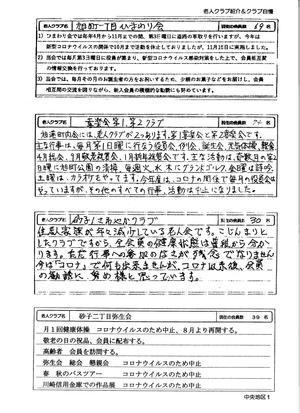 老人クラブ紹介&クラブ自慢
老人クラブ名
旭町一丁目ひまわり会
現在の会員数
69名
1)つまおり会では毎年4月から11月までの間、第3日曜日に道路の草取りを行いますが、今年は
新型コロナウイルスの関係で10月まで活動を休止しておりましたが、11月15日に実施しました。
2)当会では毎月第3日曜日に役員が集まり、新型コロナウイルス感染対策をした上で、会員相互間
の情報交換を行っております。
3)当会では、毎月その月のお誕生者の方をお祝いするため、少額のお菓子などをお届けし、会員
相互間の交流を図りながら、新入会員の積極的な勧誘にも努めています。
老人クラブ名
第1、第2クラブ
現在の会員数
名
旭町町内会には、老人クラブが2つあります。
主な行事は、毎月第1日曜に行なう役員会、例会、誕生会、
4月総会、9月敬老祝賀会、1月新年祝賀会です。主な活動は、
日曜に旭町公園の清掃、毎週火、水、木にグランドゴルフ、金曜は詩吟、
土曜は、カラオケをやってます。今年は、コロナの関係で毎月の役員会は
やっていますが、その他のすべての行事、活動は中止になりました。
老人クラブ名
砂子1さわやかクラブ
現在の会員数
30名
住民家族が年々減少している老人会です。こじんまりと
したクラブですから、全会員の健康状態は普段から分か
ります。まだ行事への参加のほうが残念でなりません
今は「コロナ」で何も出来ませんが、コロナ収束後、会員
の勧誘に、努め様と思っています。
老人クラブ名
砂子二丁目弥生会
現在の会員数
39名
月1回健康体操 コロナウイルスのため中止、8月より再開する。
敬老の日の祝品、会員に配布する。
高齢者 会員を訪問する。
弥生会 総会 懇親会 コロナウイルスのため中止
春 秋のバスツアー コロナウイルスのため中止
川崎信用金庫での作品展 コロナウイルスのため中止
中央地区1